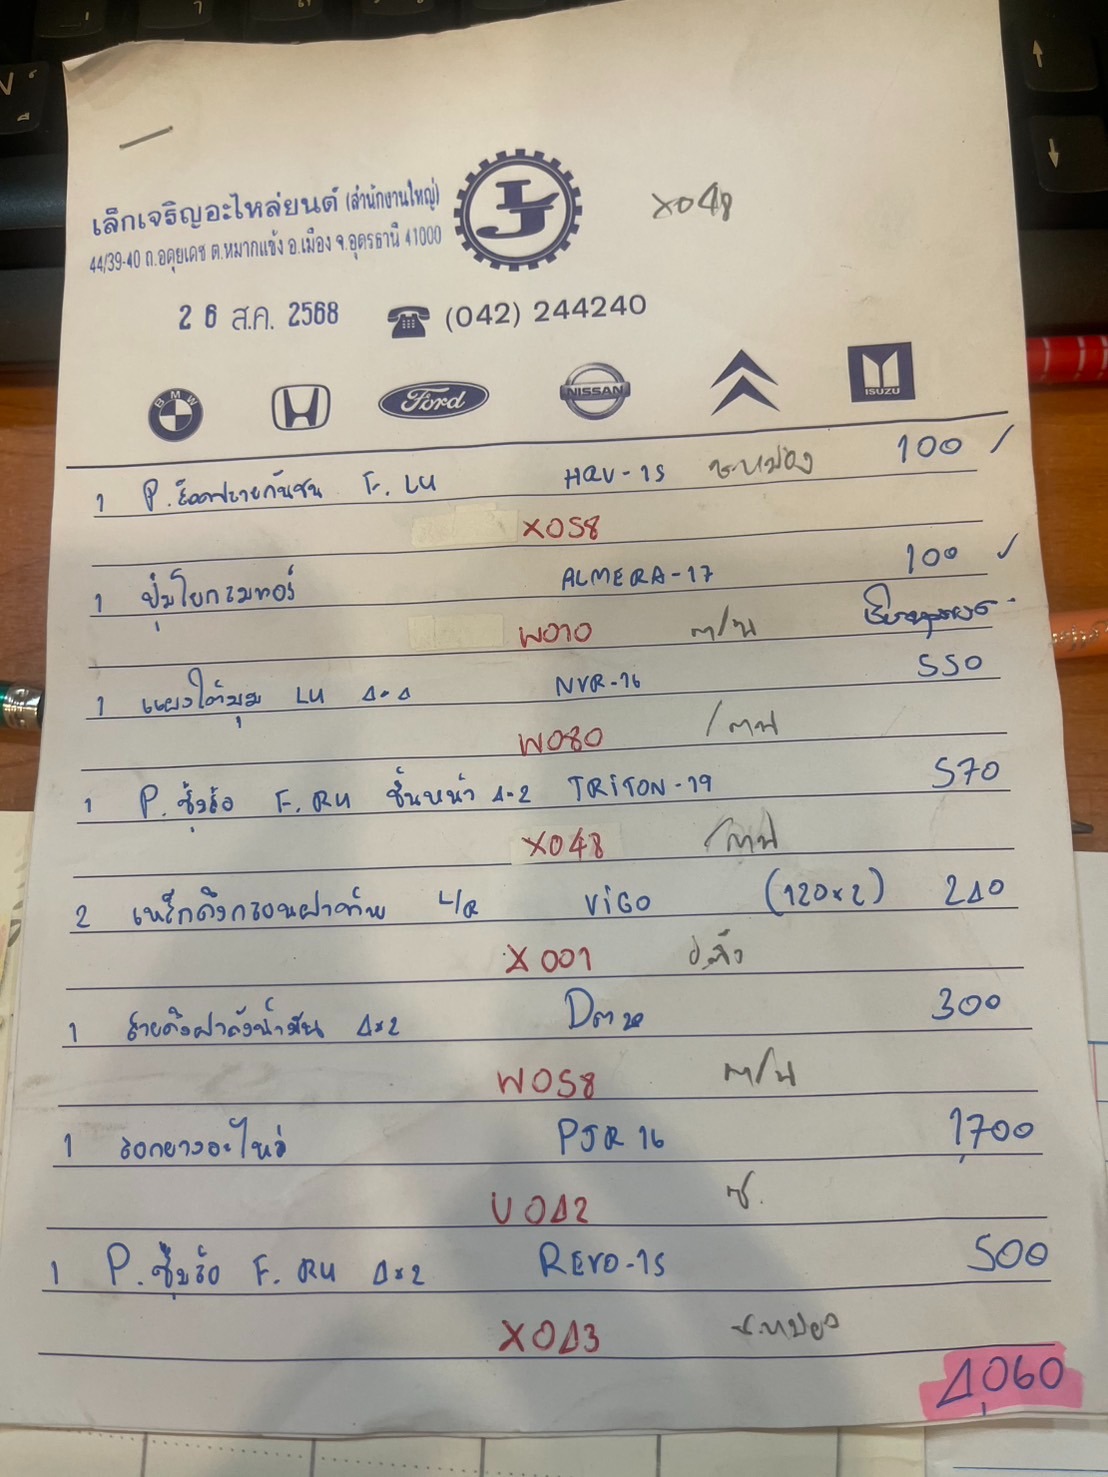 X048
เล็กเจริญอะไหล่ยนต์ (สำนักงานใหญ่)
44/39-40 ถ.อดุยเดช ต.หมากแข้ง อ.เมือง จ.อุดรธานี 41000
LJ
2 6 ส.ค. 2568 (042) 244240
BMW Ford NISSAN ISUZU
1 P. F. LH HRV-15 100
X058
1 ปุ่มโยกรมทอร์ ALMERA-17 100
W010 ต/น
1 แผงใต้มุม LH 4x4 NVR-16 550
W080
1 P. ซุ้มล้อ F. RH ชิ้นหน้า 4x2 TRITON-19 570
X048
2 เหล็กดึงกรอนฝาท้าย L/R VIGO (120x2) 240
X001
1 สายดึงฝาถังน้ำมัน 4x2 Dmax 300
W058 ต/น
1 รอกยางอะไหล่ PJR 16 1,700
U042 ช.
1 P. ซุ้มล้อ F. RH 4x2 REVO-15 500
X043
4,060